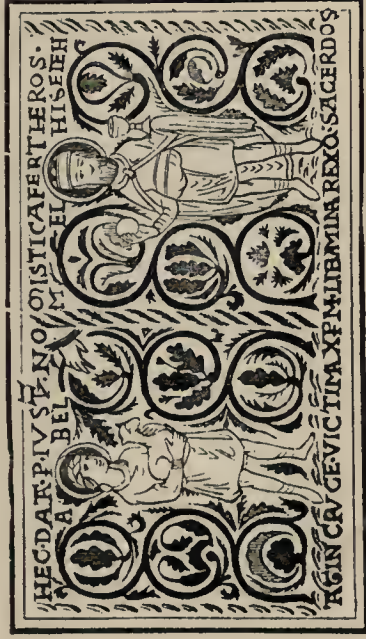 HEC·DAT·PIVS OISTICAFERTHEROS·
ABEL MEL HISEDEH
CRVCEVICTIMAXPM·LIBAMINA REXO·SACERDOS